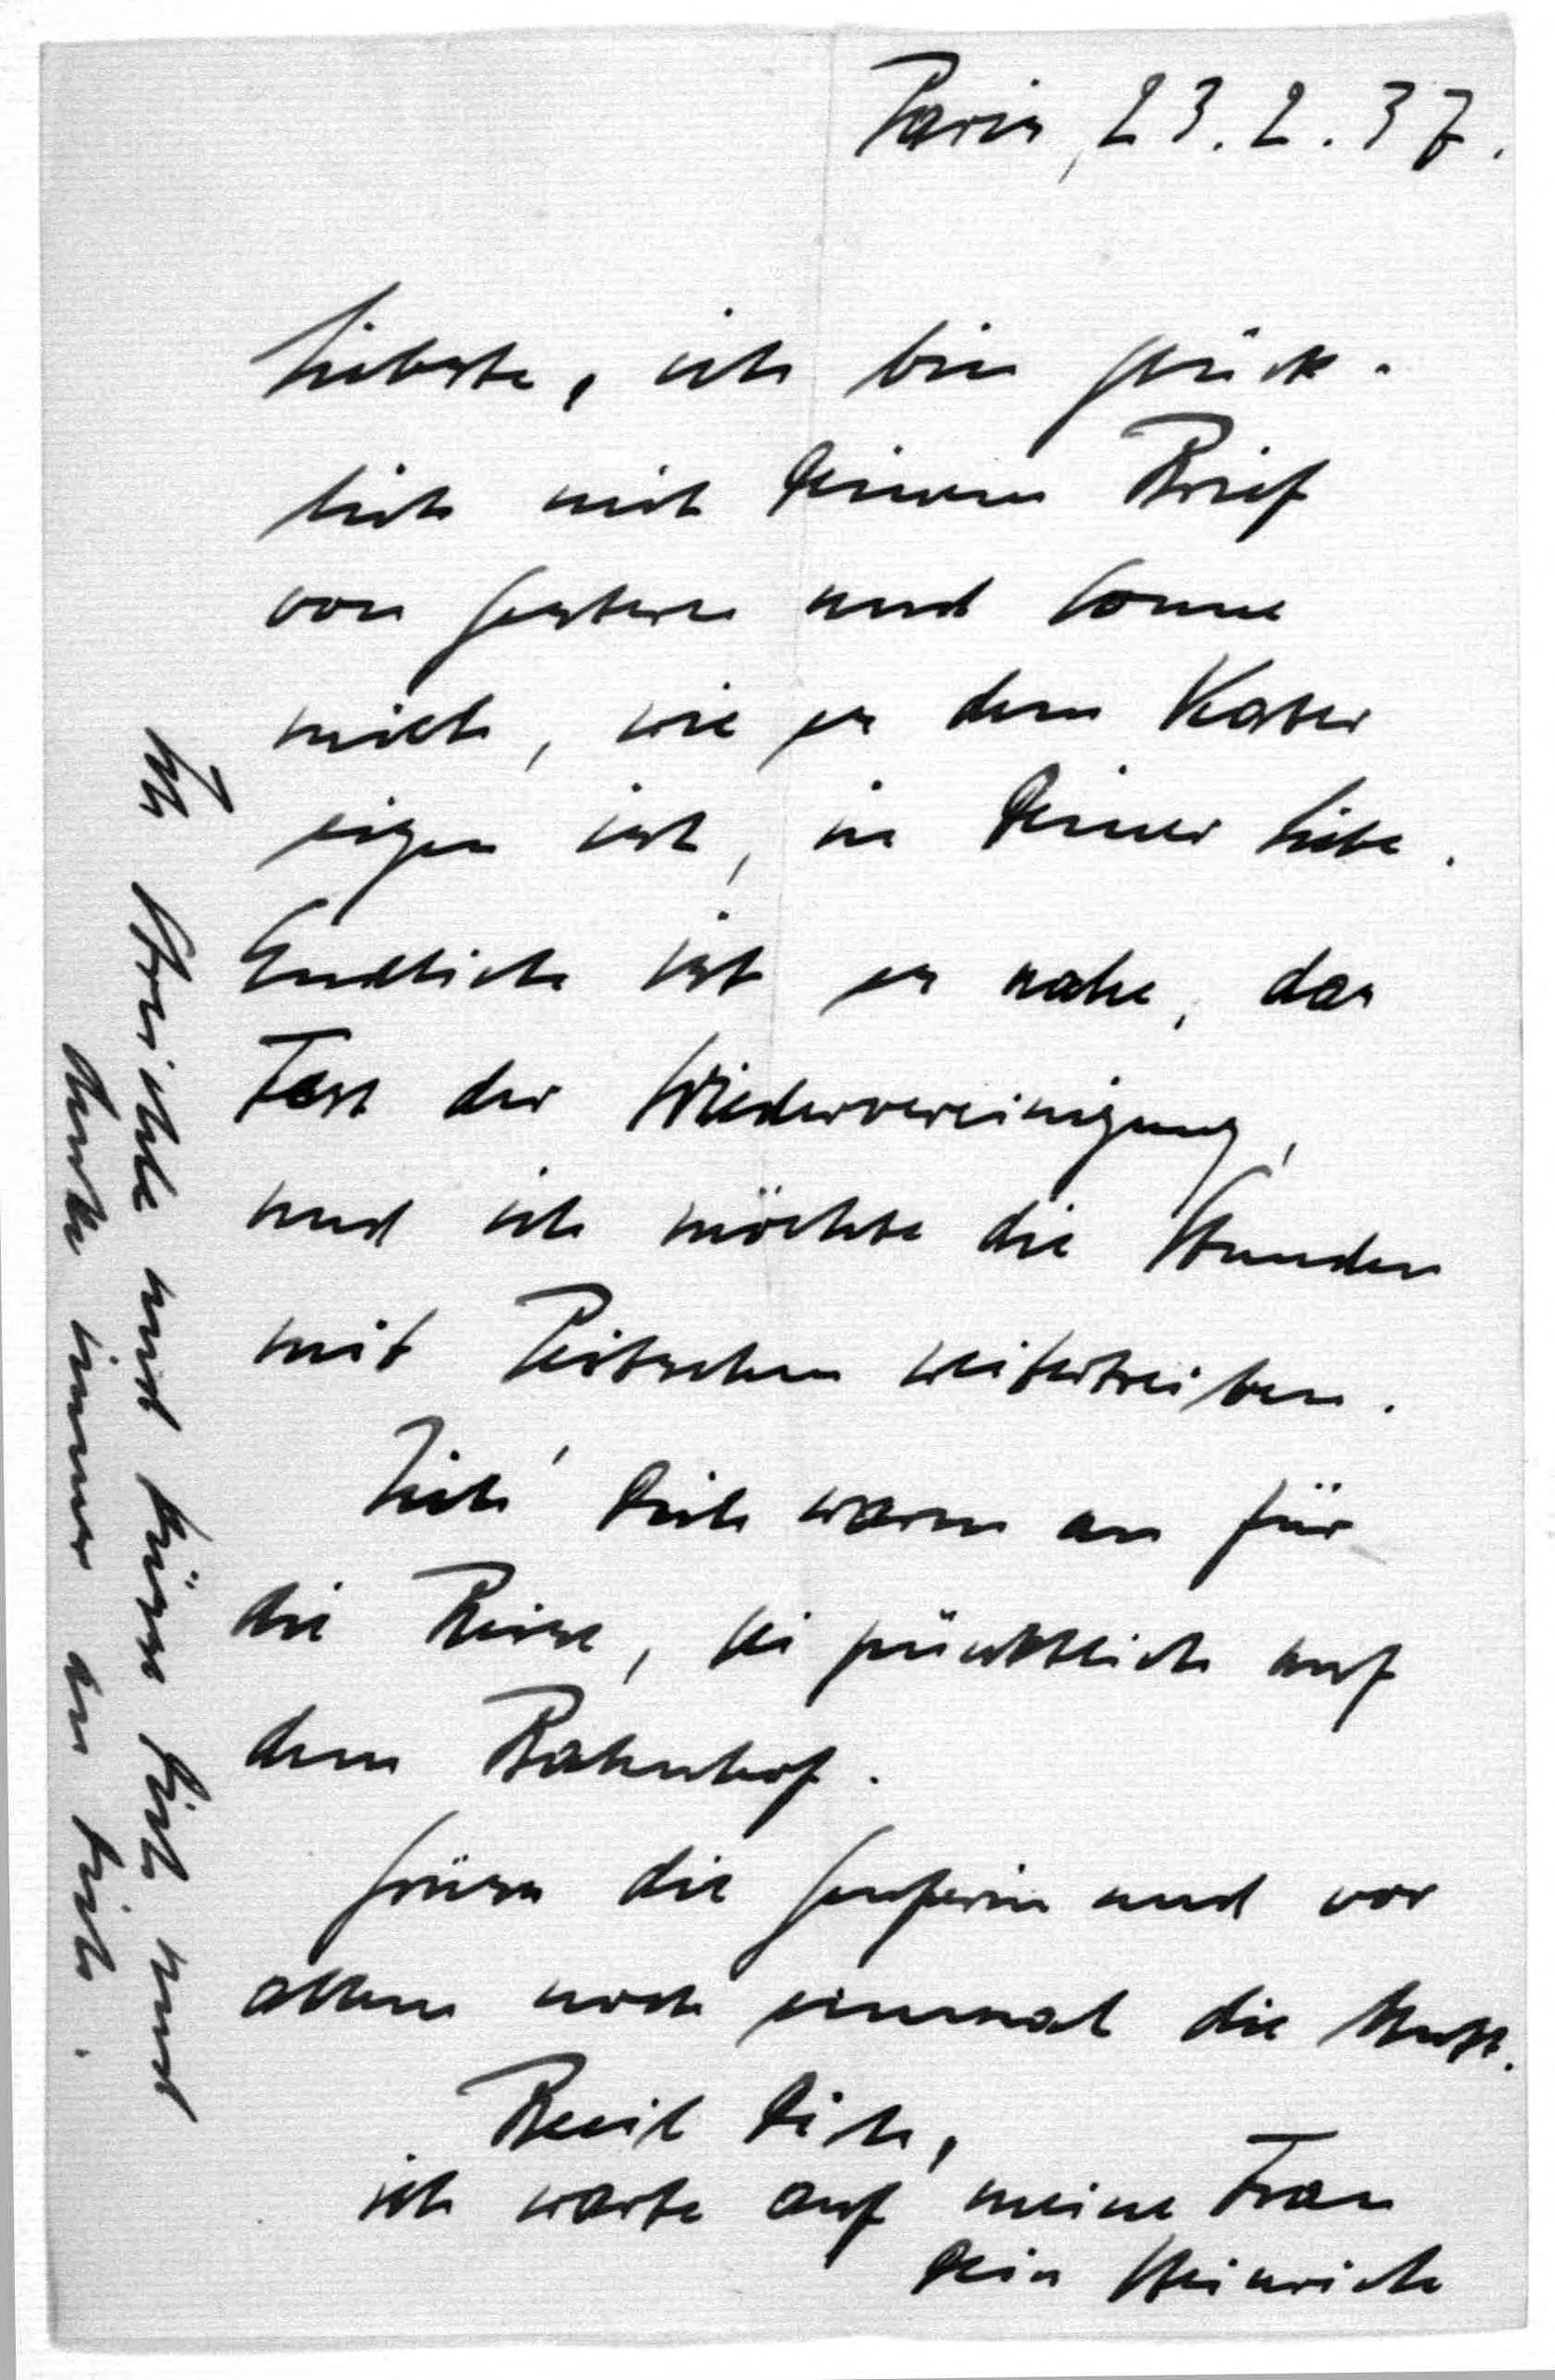 Paris, 23.2.37.
Liebste, ich bin glück-
lich mit Deinem Brief
von gestern und sonne
mich, wie es dem Kater
eigen ist, in Deiner Liebe.
Endlich ist es nahe, das
Fest der Wiedervereinigung,
und ich möchte die Stunden
mit Peitschen weitertreiben.
Zieh' Dich warm an für
die Reise, sei pünktlich auf
dem Bahnhof.
Grüss die Genferin und vor
allem noch einmal die
Beeil Dich,
ich warte auf meine Frau
Dein Heinrich
Ich streichle und küss Dich und
denke immer an Dich.